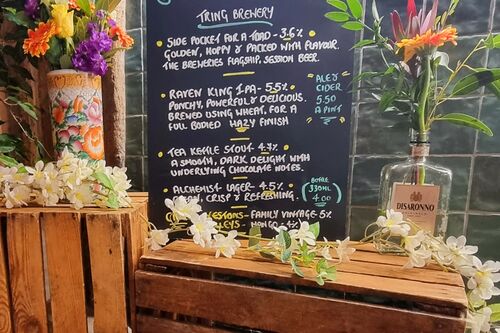 TRING BREWERY
• SIDE POCKET FOR A TOAD - 3.6%
GOLDEN, HOPPY & PACKED WITH FLAVOUR.
THE BREWERIES FLAGSHIP, SESSION BEER.
• RAVEN KING IPA - 5.5%
PUNCHY, POWERFUL & DELICIOUS.
BREWED USING WHEAT, FOR A
FULL BODIED HAZY FINISH
ALE &
CIDER
5.50
A PINT
• TEA KETTLE STOUT 4.7%
A SMOOTH, DARK DELIGHT WITH
UNDERLYING CHOCOLATE NOTES.
• ALCHEMIST LAGER - 4.5%
CRISP & REFRESHING.
BOTTLE
330ML
4.00
FAMILY VINTAGE - 5%
MANGO - 4%
DISARONNO